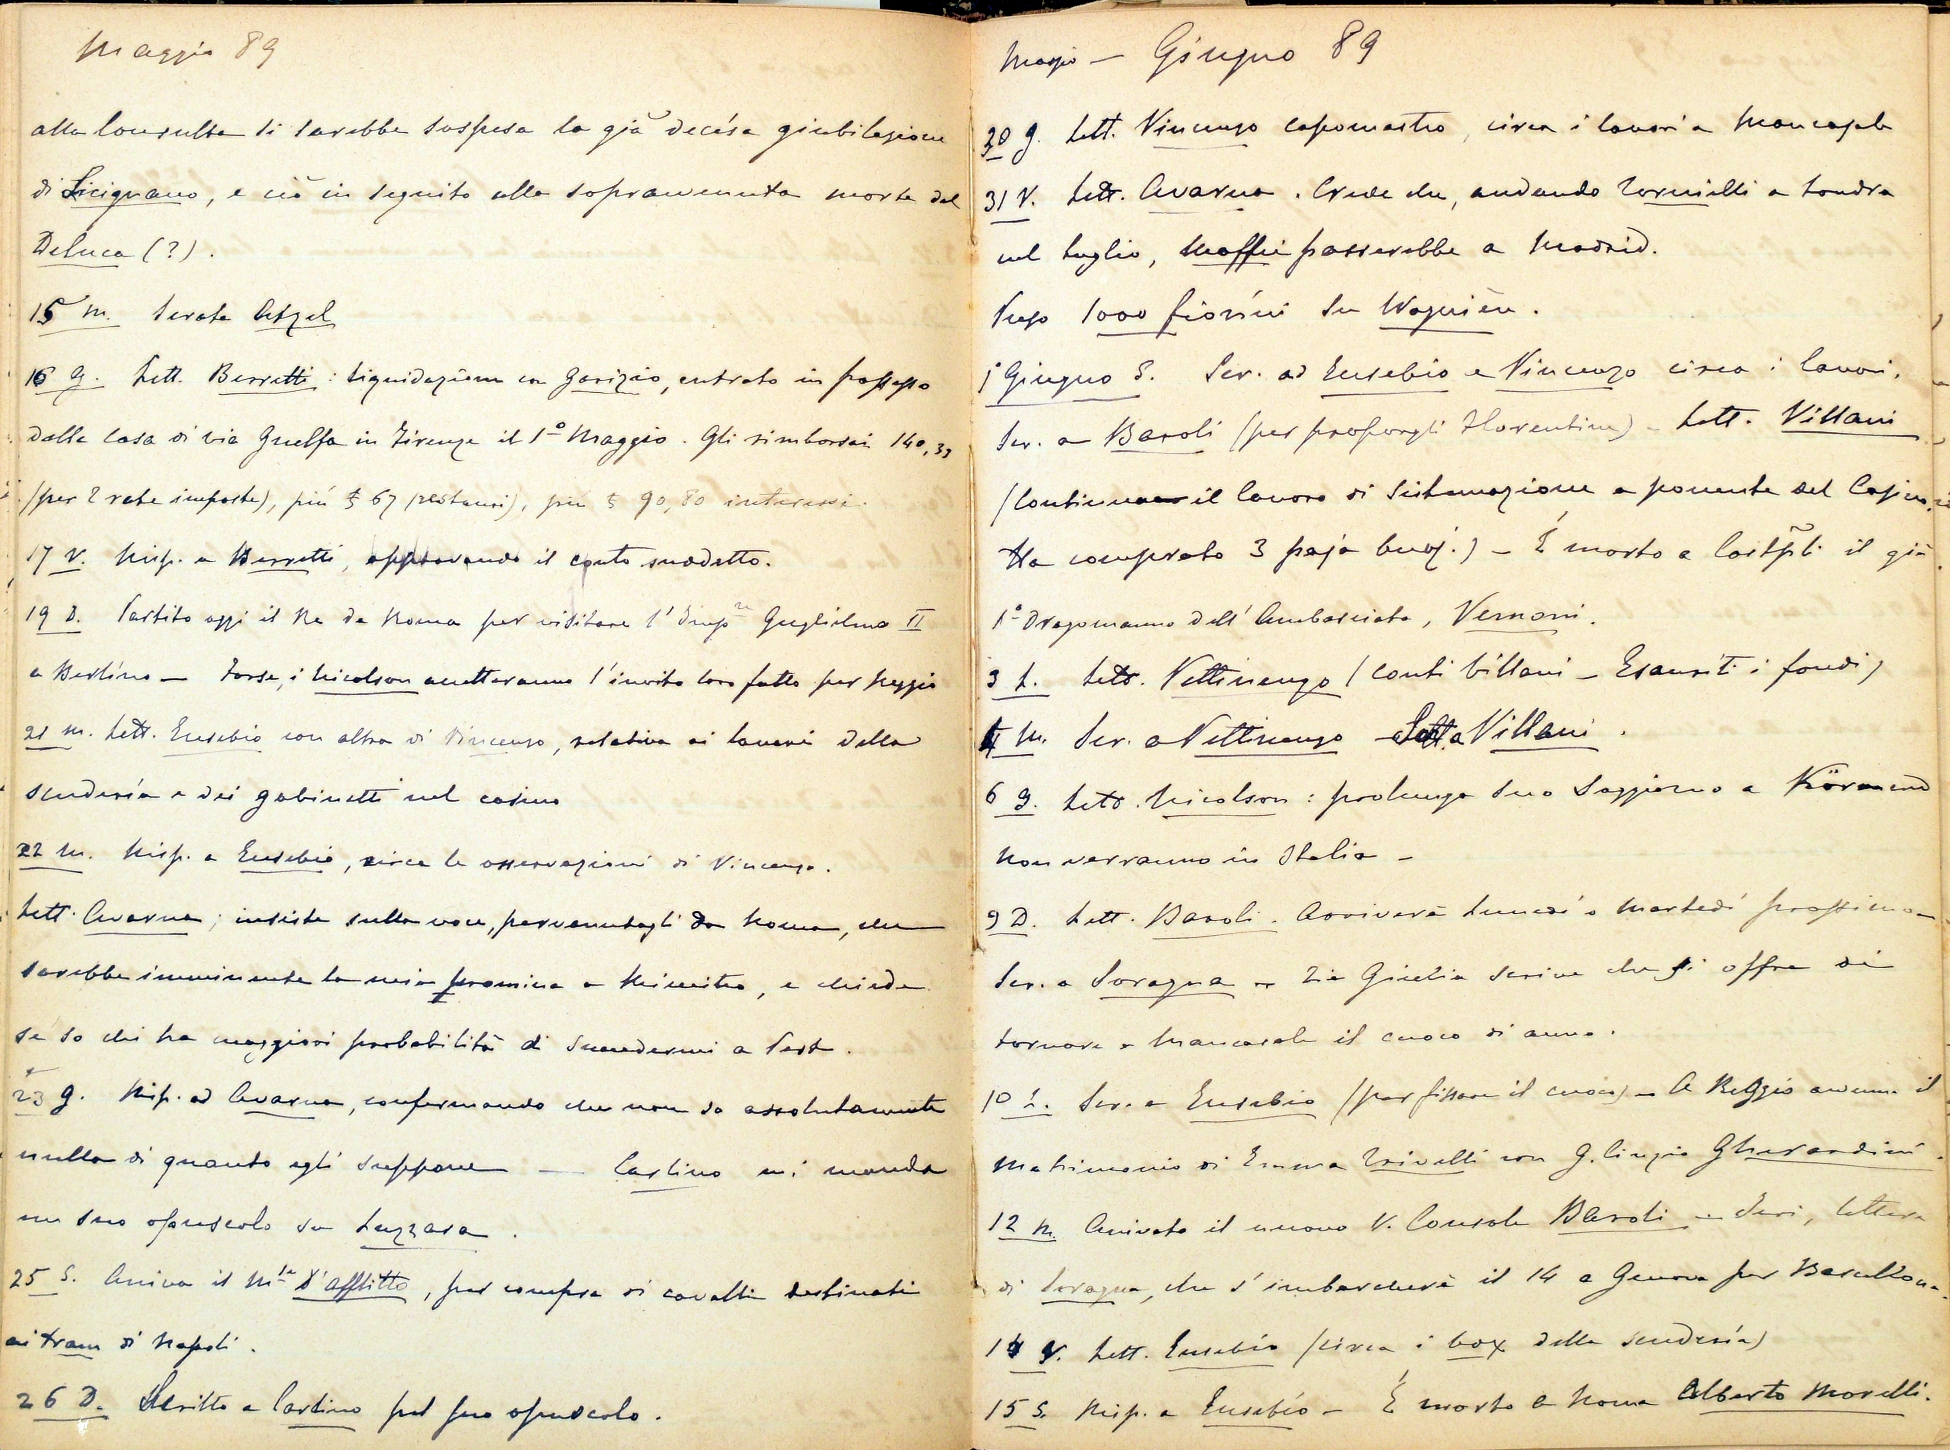 Maggio 89
alla Consulta si sarebbe sospesa la già decisa giubilazione
di Licignano, e ciò in seguito alla sopravvenuta morte del
Deluca (?).
15 M. Serata Atzel
16 G. Lett. Berretti: liquidazione con Garizio, entrato in possesso
della casa di via Guelfa in Firenze il 1° Maggio. Gli rimborsai 140,33
(per 2 rate imposte), più £ 67 (restauri), più £ 90,80 interessi.
17 V. Risp. a Berretti, approvando il conto suddetto.
19 D. Partito oggi il Re da Roma per visitare l'Imp.re Guglielmo II
a Berlino — Forse, i Nicolson accetteranno l'invito loro fatto per Reggio
21 M. Lett. Eusebio con altra di Vincenzo, relativa ai lavori della
scuderia e dei gabinetti nel casino
22 M. Risp. a Eusebio, circa le osservazioni di Vincenzo.
Lett. Avarna; insiste sulla voce, pervenutagli da Roma, che
sarebbe imminente la mia promoz.e a Ministro, e chiede
se so chi ha maggiori probabilità di succedermi a Pest.
23 G. Risp. ad Avarna, confermando che non so assolutamente
nulla di quanto egli suppone — Carlino mi manda
un suo opuscolo su Luzzara.
25 S. Arriva il M.se D'Afflitto, per compra di cavalli destinati
ai tram di Napoli.
26 D. Scritto a Carlino pel suo opuscolo.
Maggio — Giugno 89
30 G. Lett. Vincenzo capomastro, circa i lavori a Mancasale
31 V. Lett. Avarna. Crede che, andando Tornielli a Londra
nel luglio, Maffei passerebbe a Madrid.
Pago 1000 fiorini su Wagnière.
1° Giugno S. Scr. ad Eusebio e Vincenzo circa i lavori.
Scr. a Baroli (per proporgli Florentine) — Lett. Villani
(Continua il lavoro di sistemazione a ponente del Casino.
Ha comprato 3 paja buoj.) — È morto a Cost.pli il già
1° Dragomanno dell'Ambasciata, Vernoni.
3 L. Lett. Vettinengo (conti Villani — Esauriti i fondi)
4 M. Scr. a Vettinengo — Lett. a Villani.
6 G. Lett. Nicolson: prolunga suo soggiorno a Körmend
Non verranno in Italia —
9 D. Lett. Baroli. Arriverà lunedì o martedì prossimo —
Scr. a Soragna — Zia Giulia scrive che si offre di
tornare a Mancasale il cuoco di anno.
10 L. Scr. a Eusebio (per fissare il cuoco) — A Reggio avvenne il
matrimonio di Emma Trivelli con G. Cinzio Gherardini.
12 M. Arrivato il nuovo V. Console Baroli — Ieri, lettera
di Soragna, che s'imbarcherà il 14 a Genova per Barcellona.
14 V. Lett. Eusebio (circa i box della scuderia)
15 S. Risp. a Eusebio — È morto a Roma Alberto Morelli.